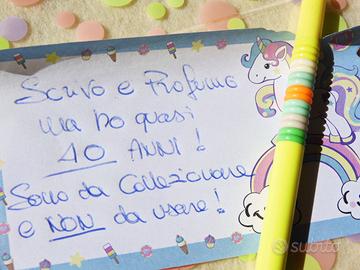 Scrivo e Profumo
ma ho quasi
40 ANNI!
Sono da Collezione
e NON da usare!
subito